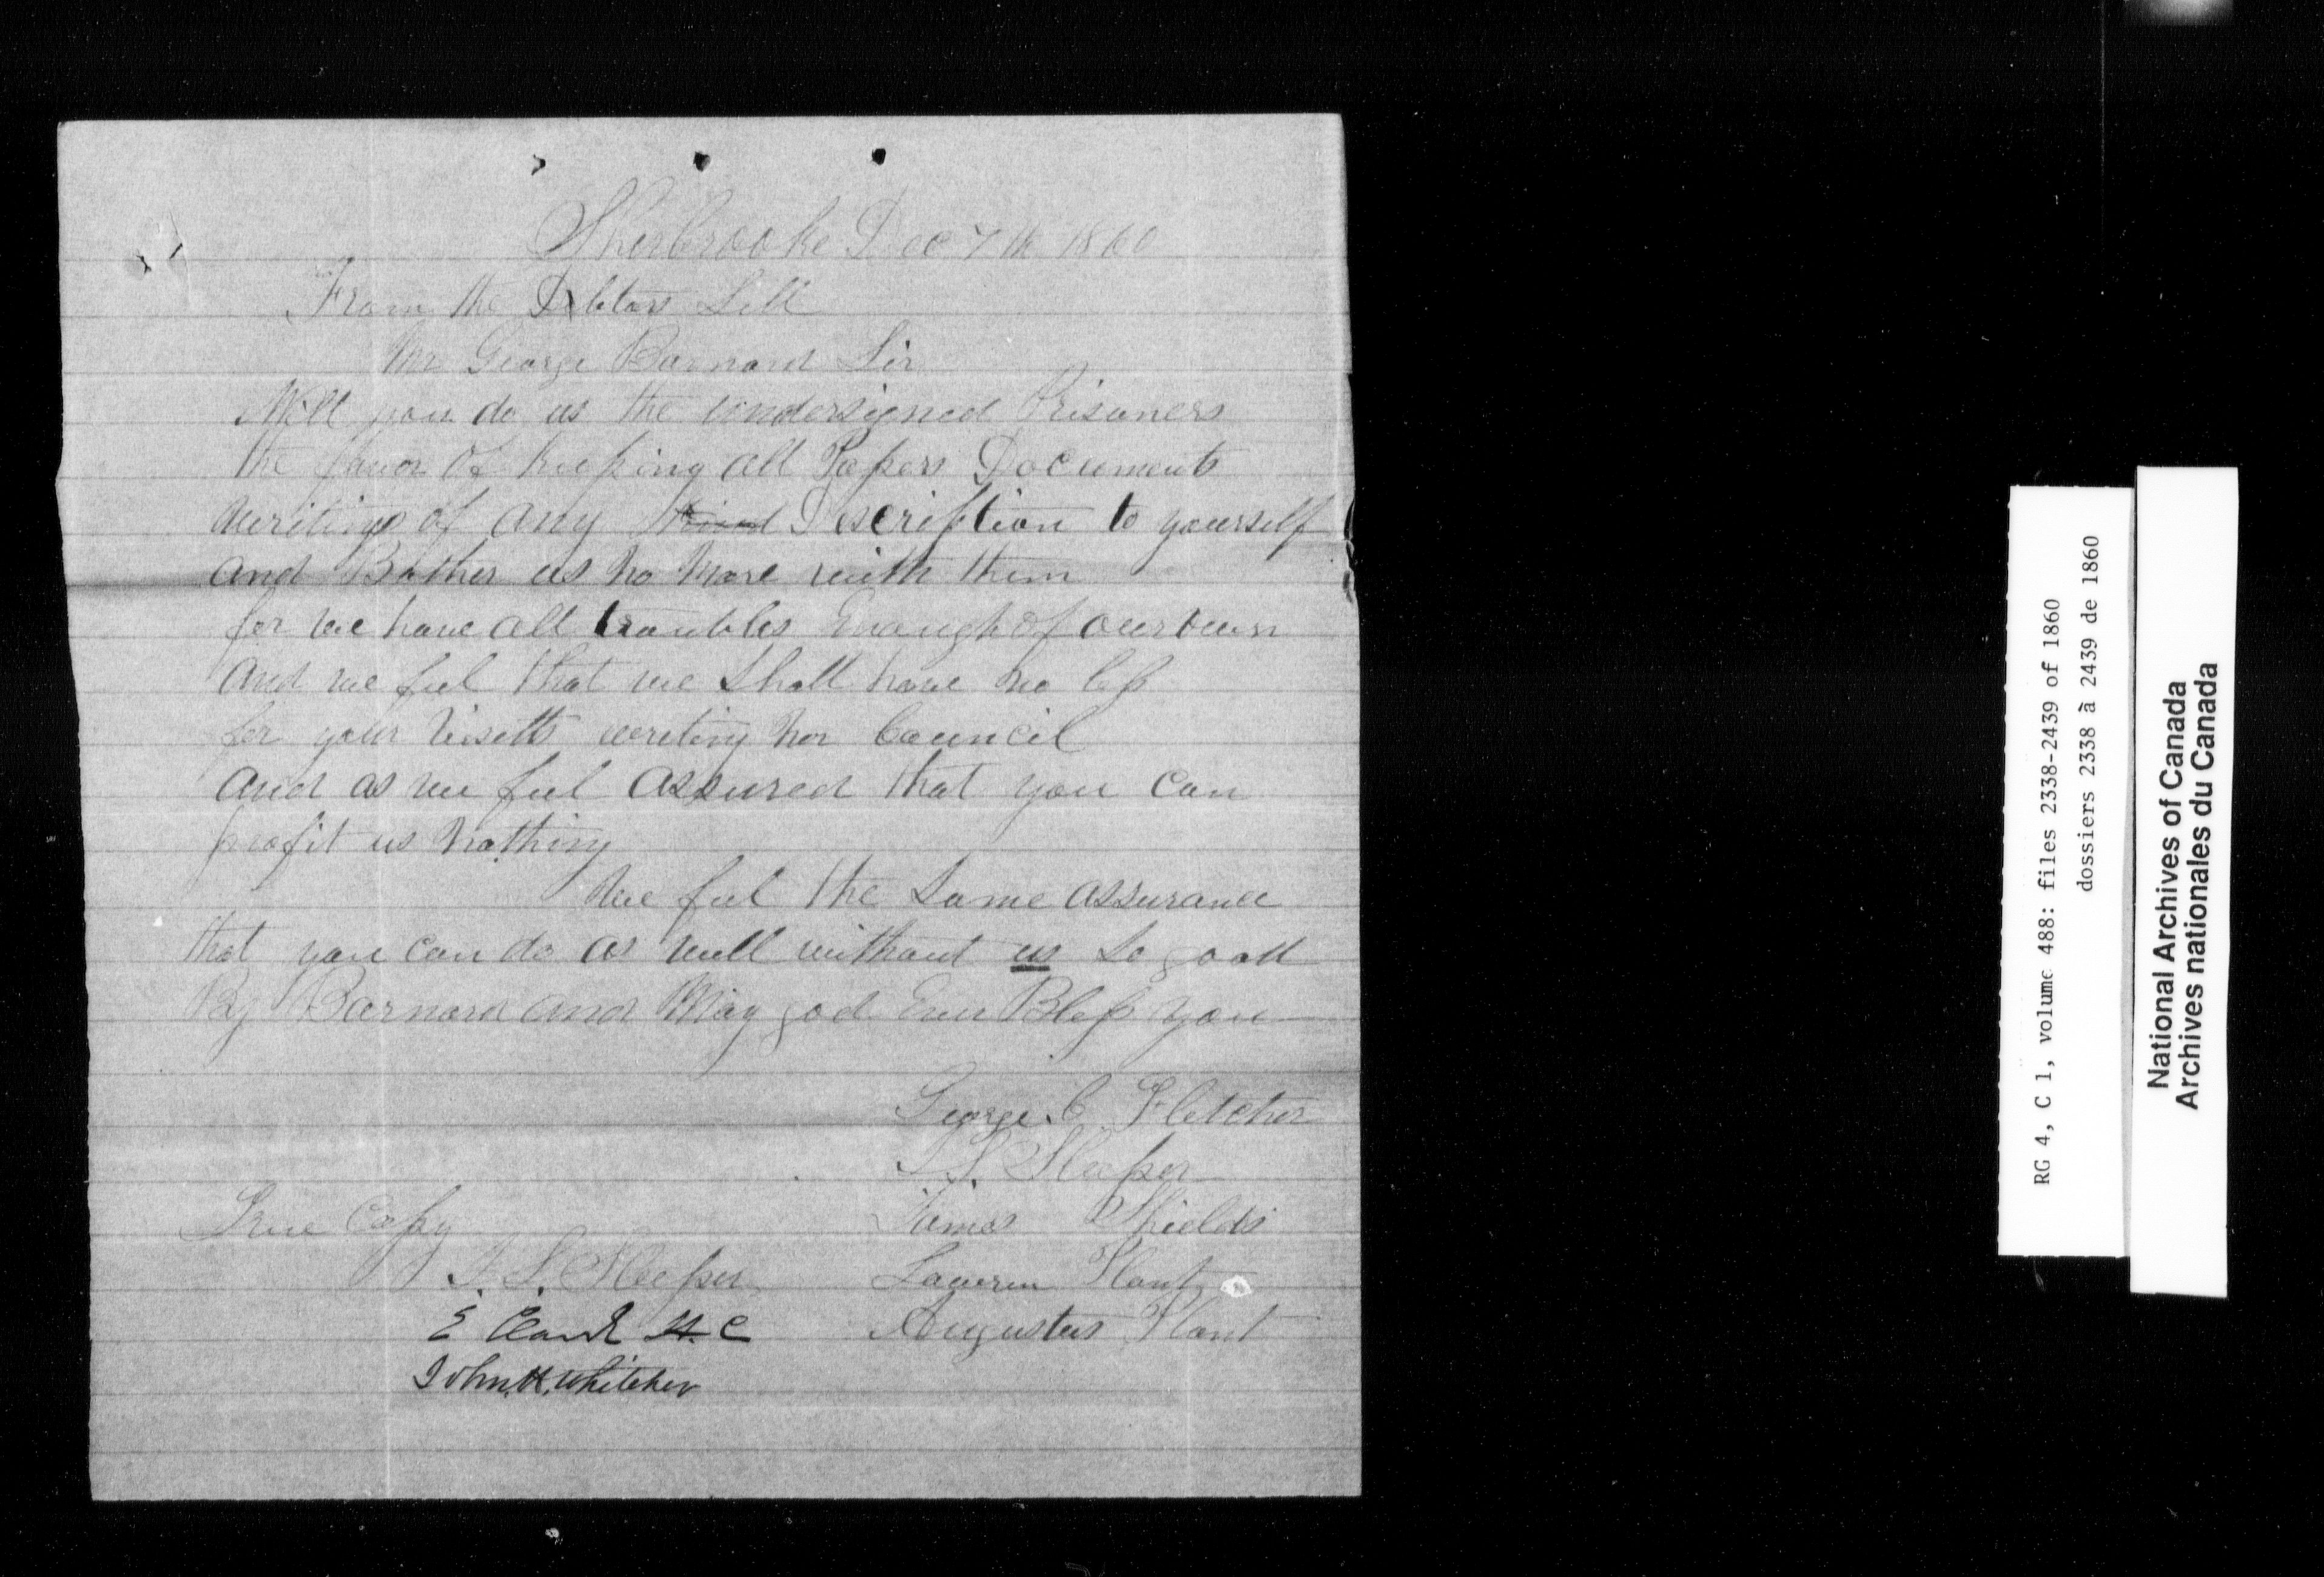 Sherbrooke Dec 7th 1860
From the Debtors Sell
Mr George Barnard Sir
Will you do us the undersigned Prisoners
the favor of keeping all Papers Documents
writings of any kind Discription to yourself
and Bother us no more with them
for we have all troubles Enough of our own
and we feel that we shall have no less
for your visetts writing nor Council
and as we feel assured that you can
profit us nothing
We feel the same assurance
that you can do as well without us so good
By Barnard and May god Ever Bless you
George C Fletcher
S. Sleeper
True Copy James Shields
S. Sleeper Plant
E Clark H. C Augustus Plant
John. H. Whitcher
RG 4, C 1, volume 488: files 2338-2439 of 1860
dossiers 2338 à 2439 de 1860
National Archives of Canada
Archives nationales du Canada